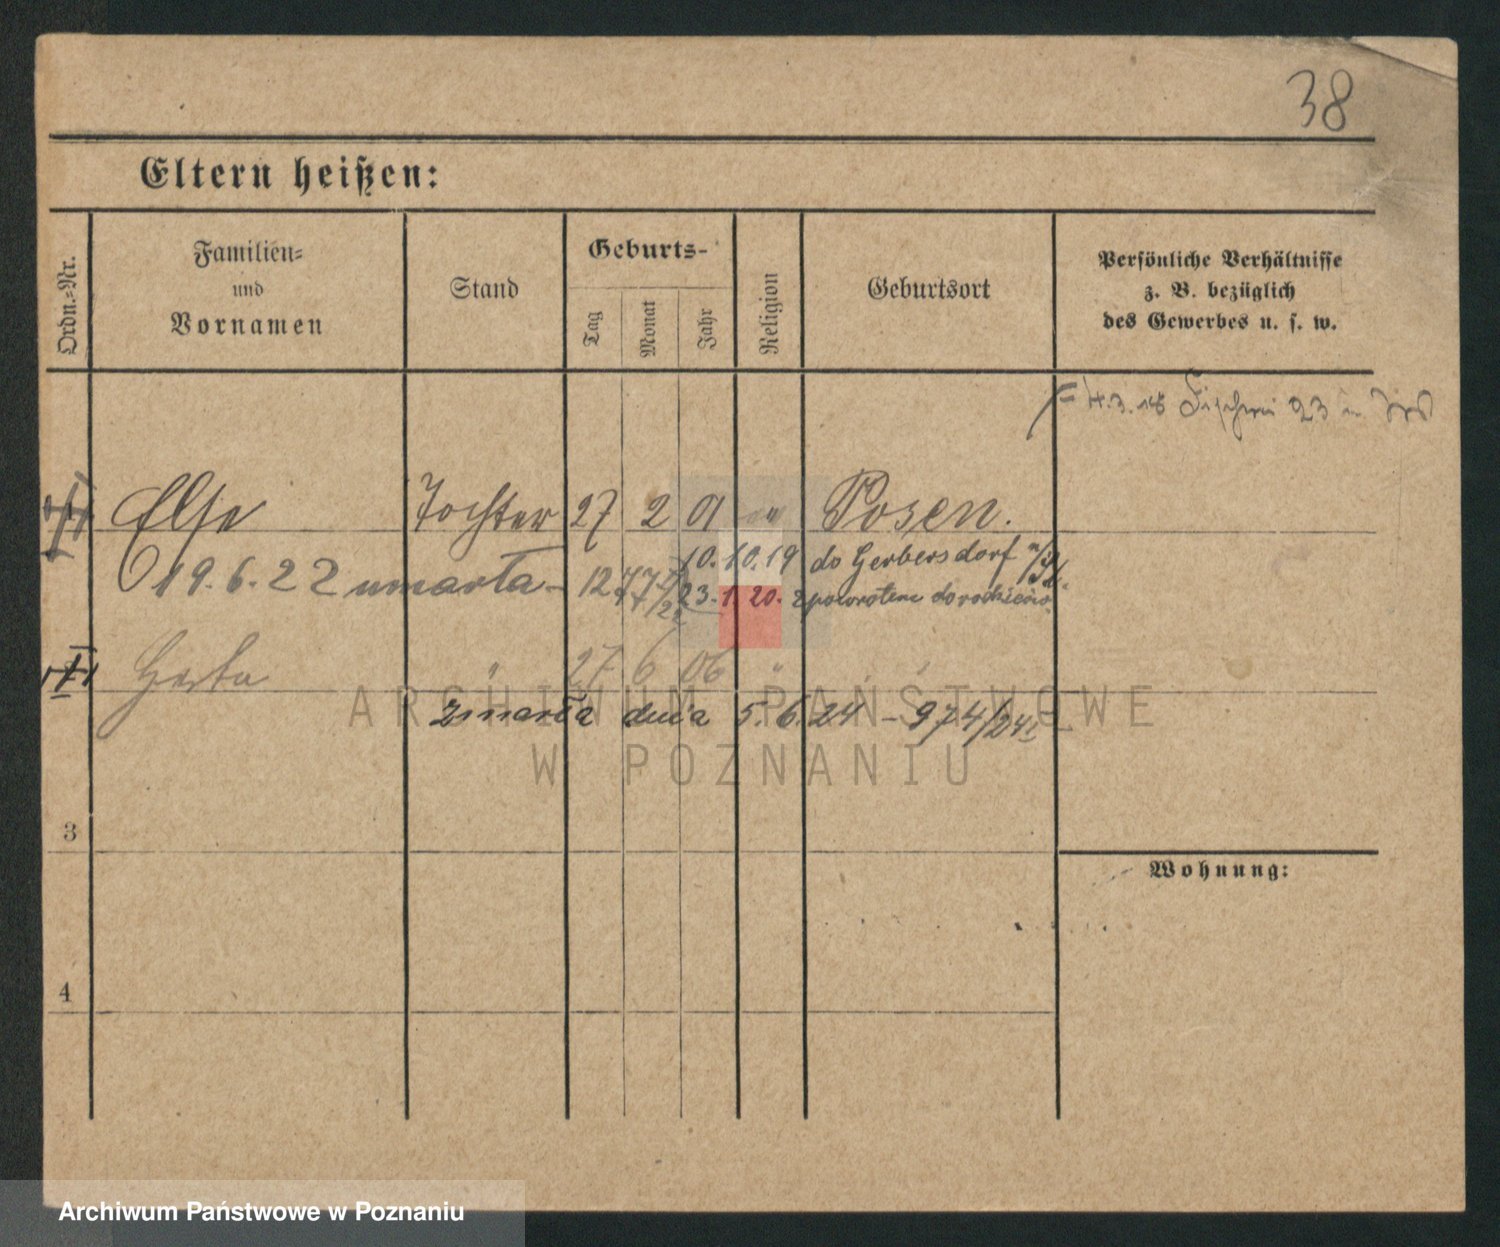 38
Eltern heißen:
Ordn.-Nr.
Familien-
und
Vornamen
Stand
Geburts-
Tag
Monat
Jahr
Religion
Geburtsort
Persönliche Verhältnisse
z. B. bezüglich
des Gewerbes u. s. w.
4.3.18 23
Else Tochter 27 2 01 " Posen.
10.10.19 do Gerbersdorf
19.6.22 umarła - 12
23.1.20. z powrotem do rodziców
Herta " 27 6 06 " "
zmarła dnia 5.6.24 - 974/24
3
4
Wohnung:
ARCHIWUM PAŃSTWOWE
W POZNANIU
Archiwum Państwowe w Poznaniu